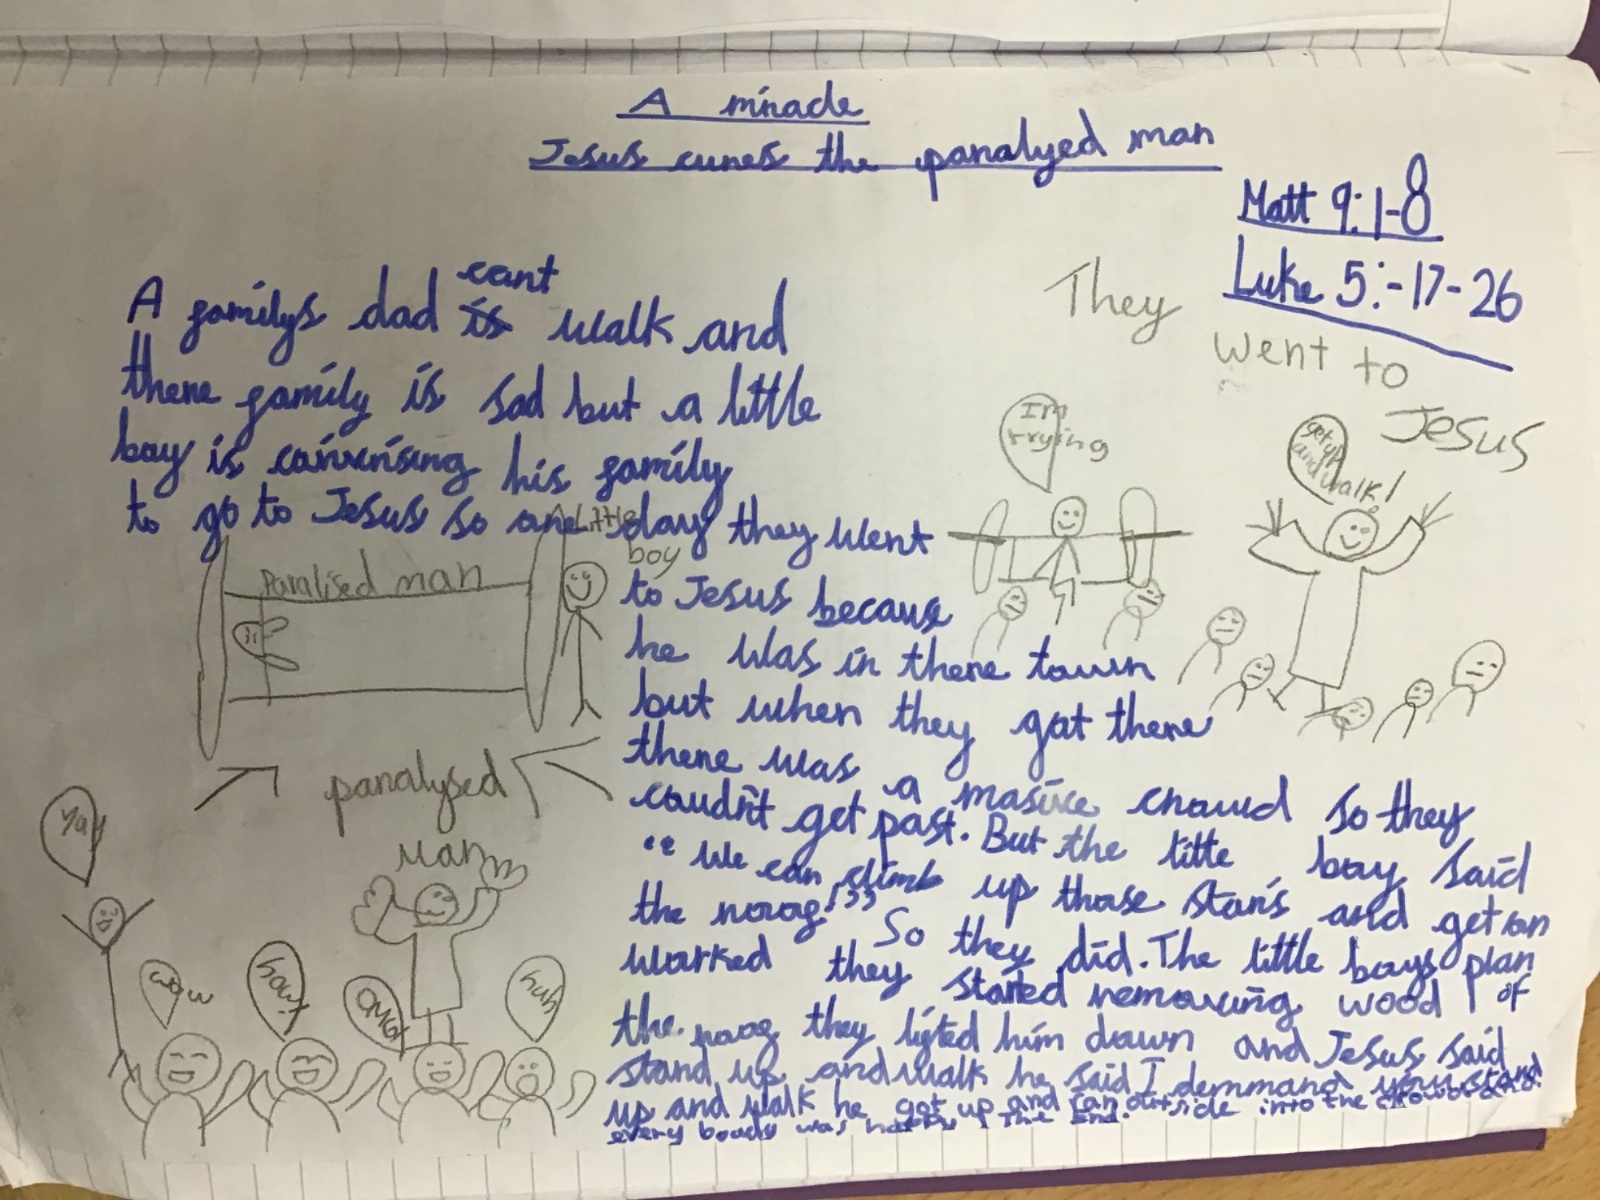 A miracle
Jesus cures the paralyed man
Matt 9:1-8
Luke 5:-17-26
A familys dad cant is walk and
there family is sad but a little
boy is convinsing his family
to go to Jesus so one day they went
to Jesus because
he was in there town
but when they got there
there was a masive crowd so they
coudn't get past. But the litte boy said
"We can climb up those stairs and get on
the roof!" So they did. The little boys plan
worked they started removing wood of
the roof they lifted him down and Jesus said
stand up and walk he said I demmand you stand
up and walk he got up and ran outside into the crowd and
every boady was happy The End.
They
went to
Jesus
Im
trying
get up
and walk!
Little
boy
Paralised man
paralysed
Man
Yay
wow
how?
OMG!
huh